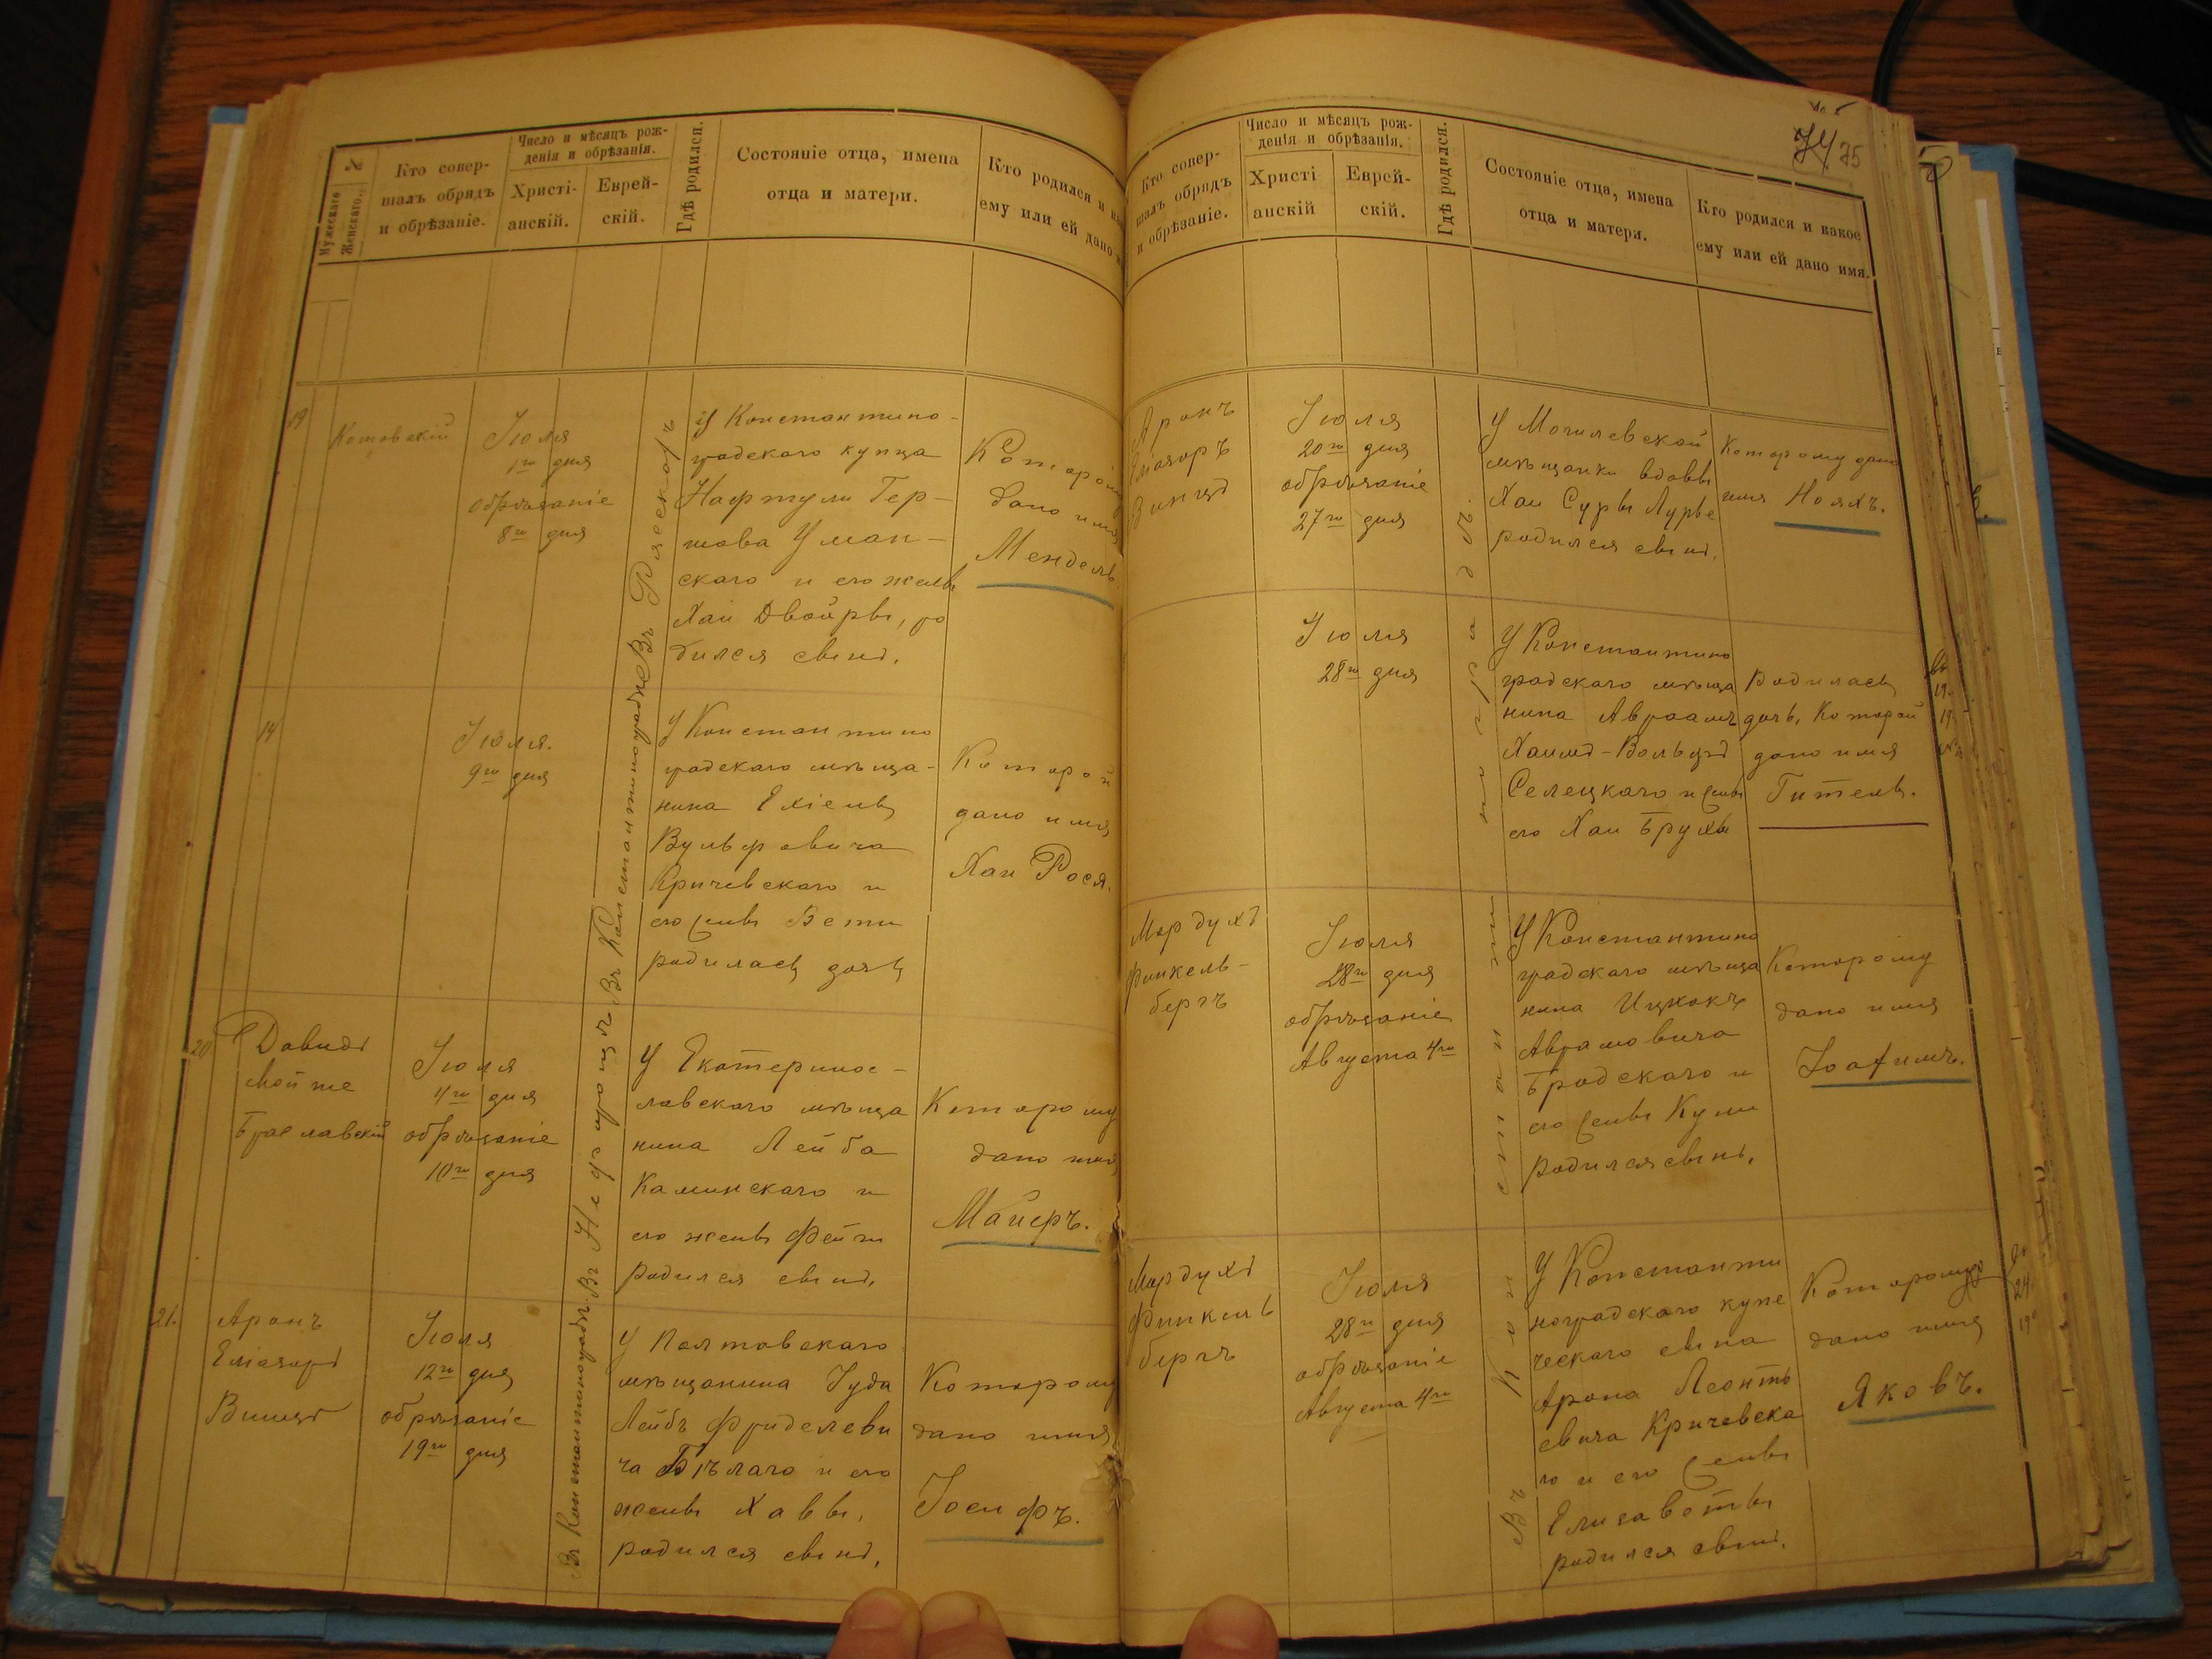 №
Мужескаго
Женскаго.
Кто совер-
шалъ обрядъ
и обрѣзаніе.
Число и мѣсяцъ рож-
денія и обрѣзанія.
Христі-
анскій.
Еврей-
скій.
Гдѣ родился.
Состояніе отца, имена
отца и матери.
Кто родился и
ему или ей дано
19
Котовскій
Іюля
1го дня
обрѣзаніе
8го дня
Въ Рясскахъ
У Константино-
градскаго купца
Нафтули Гер-
шова Уман-
скаго и его жены
Хаи Двойры, ро
дился сынъ.
Которому
дано имя
Мендель.
14
Іюля.
9го дня
Въ Константиноградѣ
У Константино
градскаго мѣща-
нина Ехіель
Вульфовича
Кричевскаго и
его жены Бети
родилась дочь
Которой
дано имя
Хаи Рося.
20
Давидъ
Мойше
Браславскій
Іюля
4го дня
обрѣзаніе
10го дня
Въ
У Екатеринос-
лавскаго мѣща
нина Лейба
Каминскаго и
его жены Фейги
родился сынъ.
Которому
дано имя
Майеръ.
21.
Аронъ
Еліазаръ
Виницъ
Іюля
12го дня
обрѣзаніе
19го дня
Въ Константиноградѣ.
У Полтавскаго
мѣщанина Іуда
Лейбъ Фриделеви
ча Бѣлаго и его
жены Хавы,
родился сынъ,
Которому
дано имя
Іосифъ.
74 75
Кто совер-
шалъ обрядъ
и обрѣзаніе.
Число и мѣсяцъ рож-
денія и обрѣзанія.
Христі
анскій
Еврей-
скій.
Гдѣ родился.
Состояніе отца, имена
отца и матери.
Кто родился и какое
ему или ей дано имя.
Аронъ
Еліазаръ
Виницъ
Іюля
20го дня
обрѣзаніе
27го дня
Въ Константиноградѣ.
У Могилевской
мѣщанки вдовы
Хаи Суры Лурье
родился сынъ.
Которому дано
имя Нояхъ.
Іюля
28го дня
У Константино
градскаго мѣща
нина Авраамъ
Хаимъ-Вольфъ
Селецкаго и жены
его Хаи Брухи
Родилась
дочь, Которой
дано имя
Гитель.
Мордухъ
Финкель-
бергъ
Іюля
28го дня
обрѣзаніе
Августа 4го
У Константино
градскаго мѣща
нина Ицхокъ
Аврамовича
Бродскаго и
его жены Куни
родился сынъ.
Которому
дано имя
Іоахимъ.
Мордухъ
Финкель
бергъ
Іюля
28го дня
обрѣзаніе
Августа 4го
У Константи
ноградскаго купе
ческаго сына
Арона Леонть
евича Кричевска
го и его жены
Елизаветы
родился сынъ.
Которому
дано имя
Яковъ.